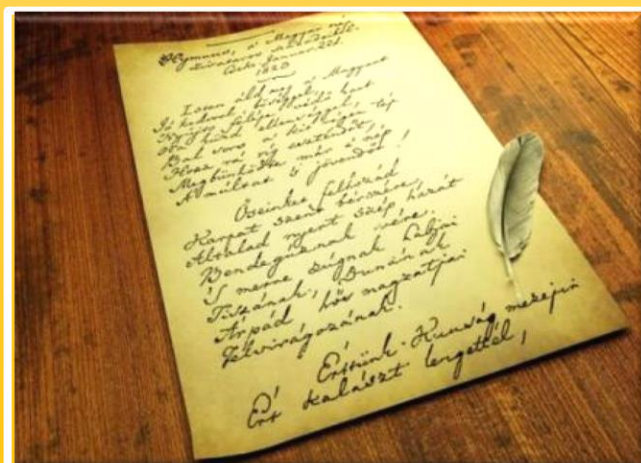 Hymnus, a' Magyar nép
zivataros századaiból.
Cseke, Januar 22d.
1823
Isten áldd meg a' Magyart
Jó kedvvel, bőséggel,
Nyújts feléje védő kart
Ha küzd ellenséggel;
Bal sors a' kit régen tép
Hozz rá víg esztendőt,
Megbünhödte már e' nép
A' múltat 's jövendőt!
Őseinket felhozád
Kárpát szent bérczére,
Általad nyert szép hazát
Bendegúznak vére.
'S merre zúgnak habjai
Tiszának, Dunának
Árpád hős magzatjai
Felvirágozának.
Értünk Kunság mezején
Ért kalászt lengettél,